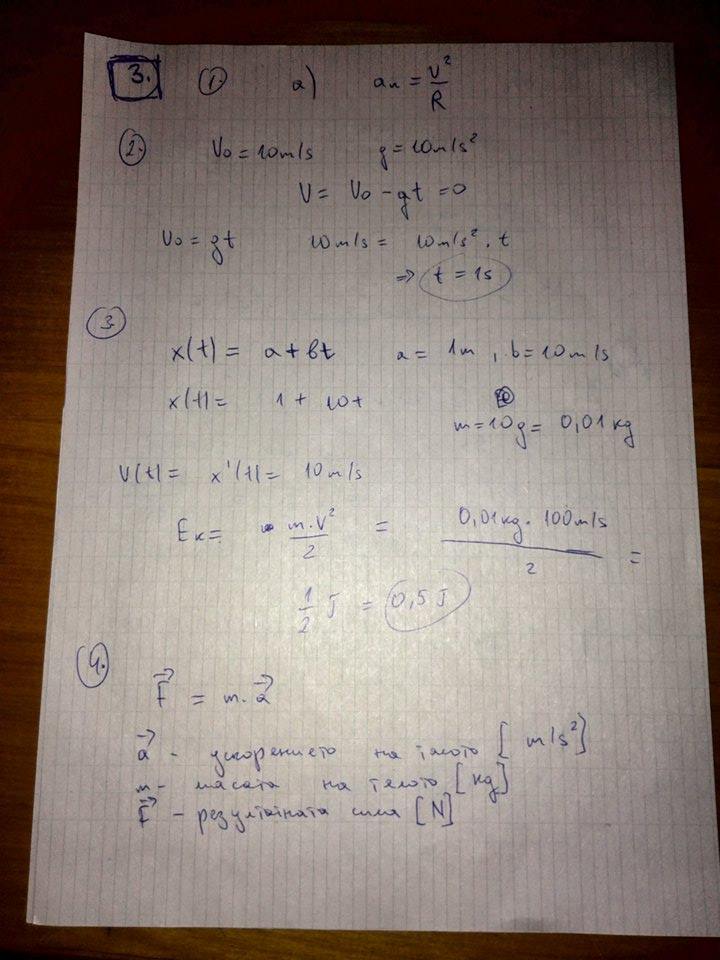 3. 1. a) aₙ = V²/R
2. V₀ = 10m/s g = 10m/s²
V = V₀ - gt = 0
V₀ = gt 10m/s = 10m/s² . t
=> t = 1s
3
x(t) = a + bt a = 1m , b = 10m/s
x(t) = 1 + 10t
m = 10g = 0,01 kg
V(t) = x'(t) = 10m/s
Eₖ = m.V²/2 = 0,01kg . 100m/s / 2 =
1/2 J = 0,5 J
4.
F⃗ = m.a⃗
a⃗ - ускорението на тялото [m/s²]
m - масата на тялото [kg]
F⃗ - резултатната сила [N]